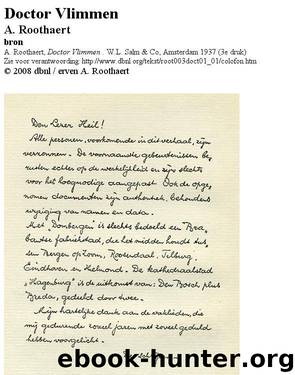 Doctor Vlimmen
A. Roothaert
bron
A. Roothaert, Doctor Vlimmen. W.L. Salm & Co, Amsterdam 1937 (3e druk)
Zie voor verantwoording: http://www.dbnl.org/tekst/root003doct01_01/colofon.htm
© 2008 dbnl / erven A. Roothaert
Den Lezer Heil!
Alle personen, voorkomende in dit verhaal, zijn
verzonnen. De voornaamste gebeurtenissen be-
rusten echter op de werkelijkheid en zijn slechts
voor het hoognodige aangepast. Ook de opge-
nomen documenten zijn authentiek, behoudens
wijziging van namen en data.
Met "Dombergen" is slechts bedoeld een Bra-
bantse fabriekstad, die het midden houdt tus-
sen Bergen op Zoom, Roosendaal, Tilburg,
Eindhoven en Helmond. De kathedraalstad
"Hagenburg" is de uitkomst van: Den Bosch plus
Breda, gedeeld door twee.
Mijn hartelijke dank aan de vaklieden, die
mij gedurende zoveel jaren met zoveel geduld
hebben voorgelicht.
ebook-hunter.org